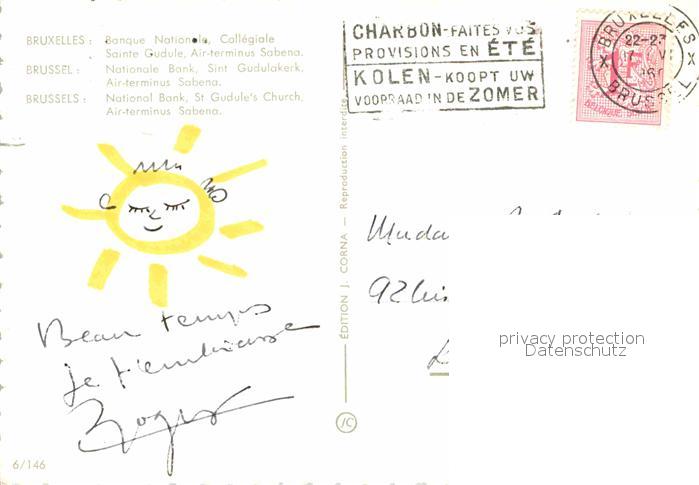 BRUXELLES : Banque Nationale, Collégiale
Sainte Gudule, Air-terminus Sabena.
BRUSSEL : Nationale Bank, Sint Gudulakerk,
Air-terminus Sabena.
BRUSSELS : National Bank, St Gudule's Church,
Air-terminus Sabena.
CHARBON-FAITES VOS
PROVISIONS EN ÉTÉ
KOLEN-KOOPT UW
VOORRAAD IN DE ZOMER
BRUXELLES X
22-23
BRUSSEL X
F
ÉDITION J. CORNA — Reproduction interdite
JC
Beau temps
je t'embrasse
Roger
92bis
privacy protection
Datenschutz
6/146